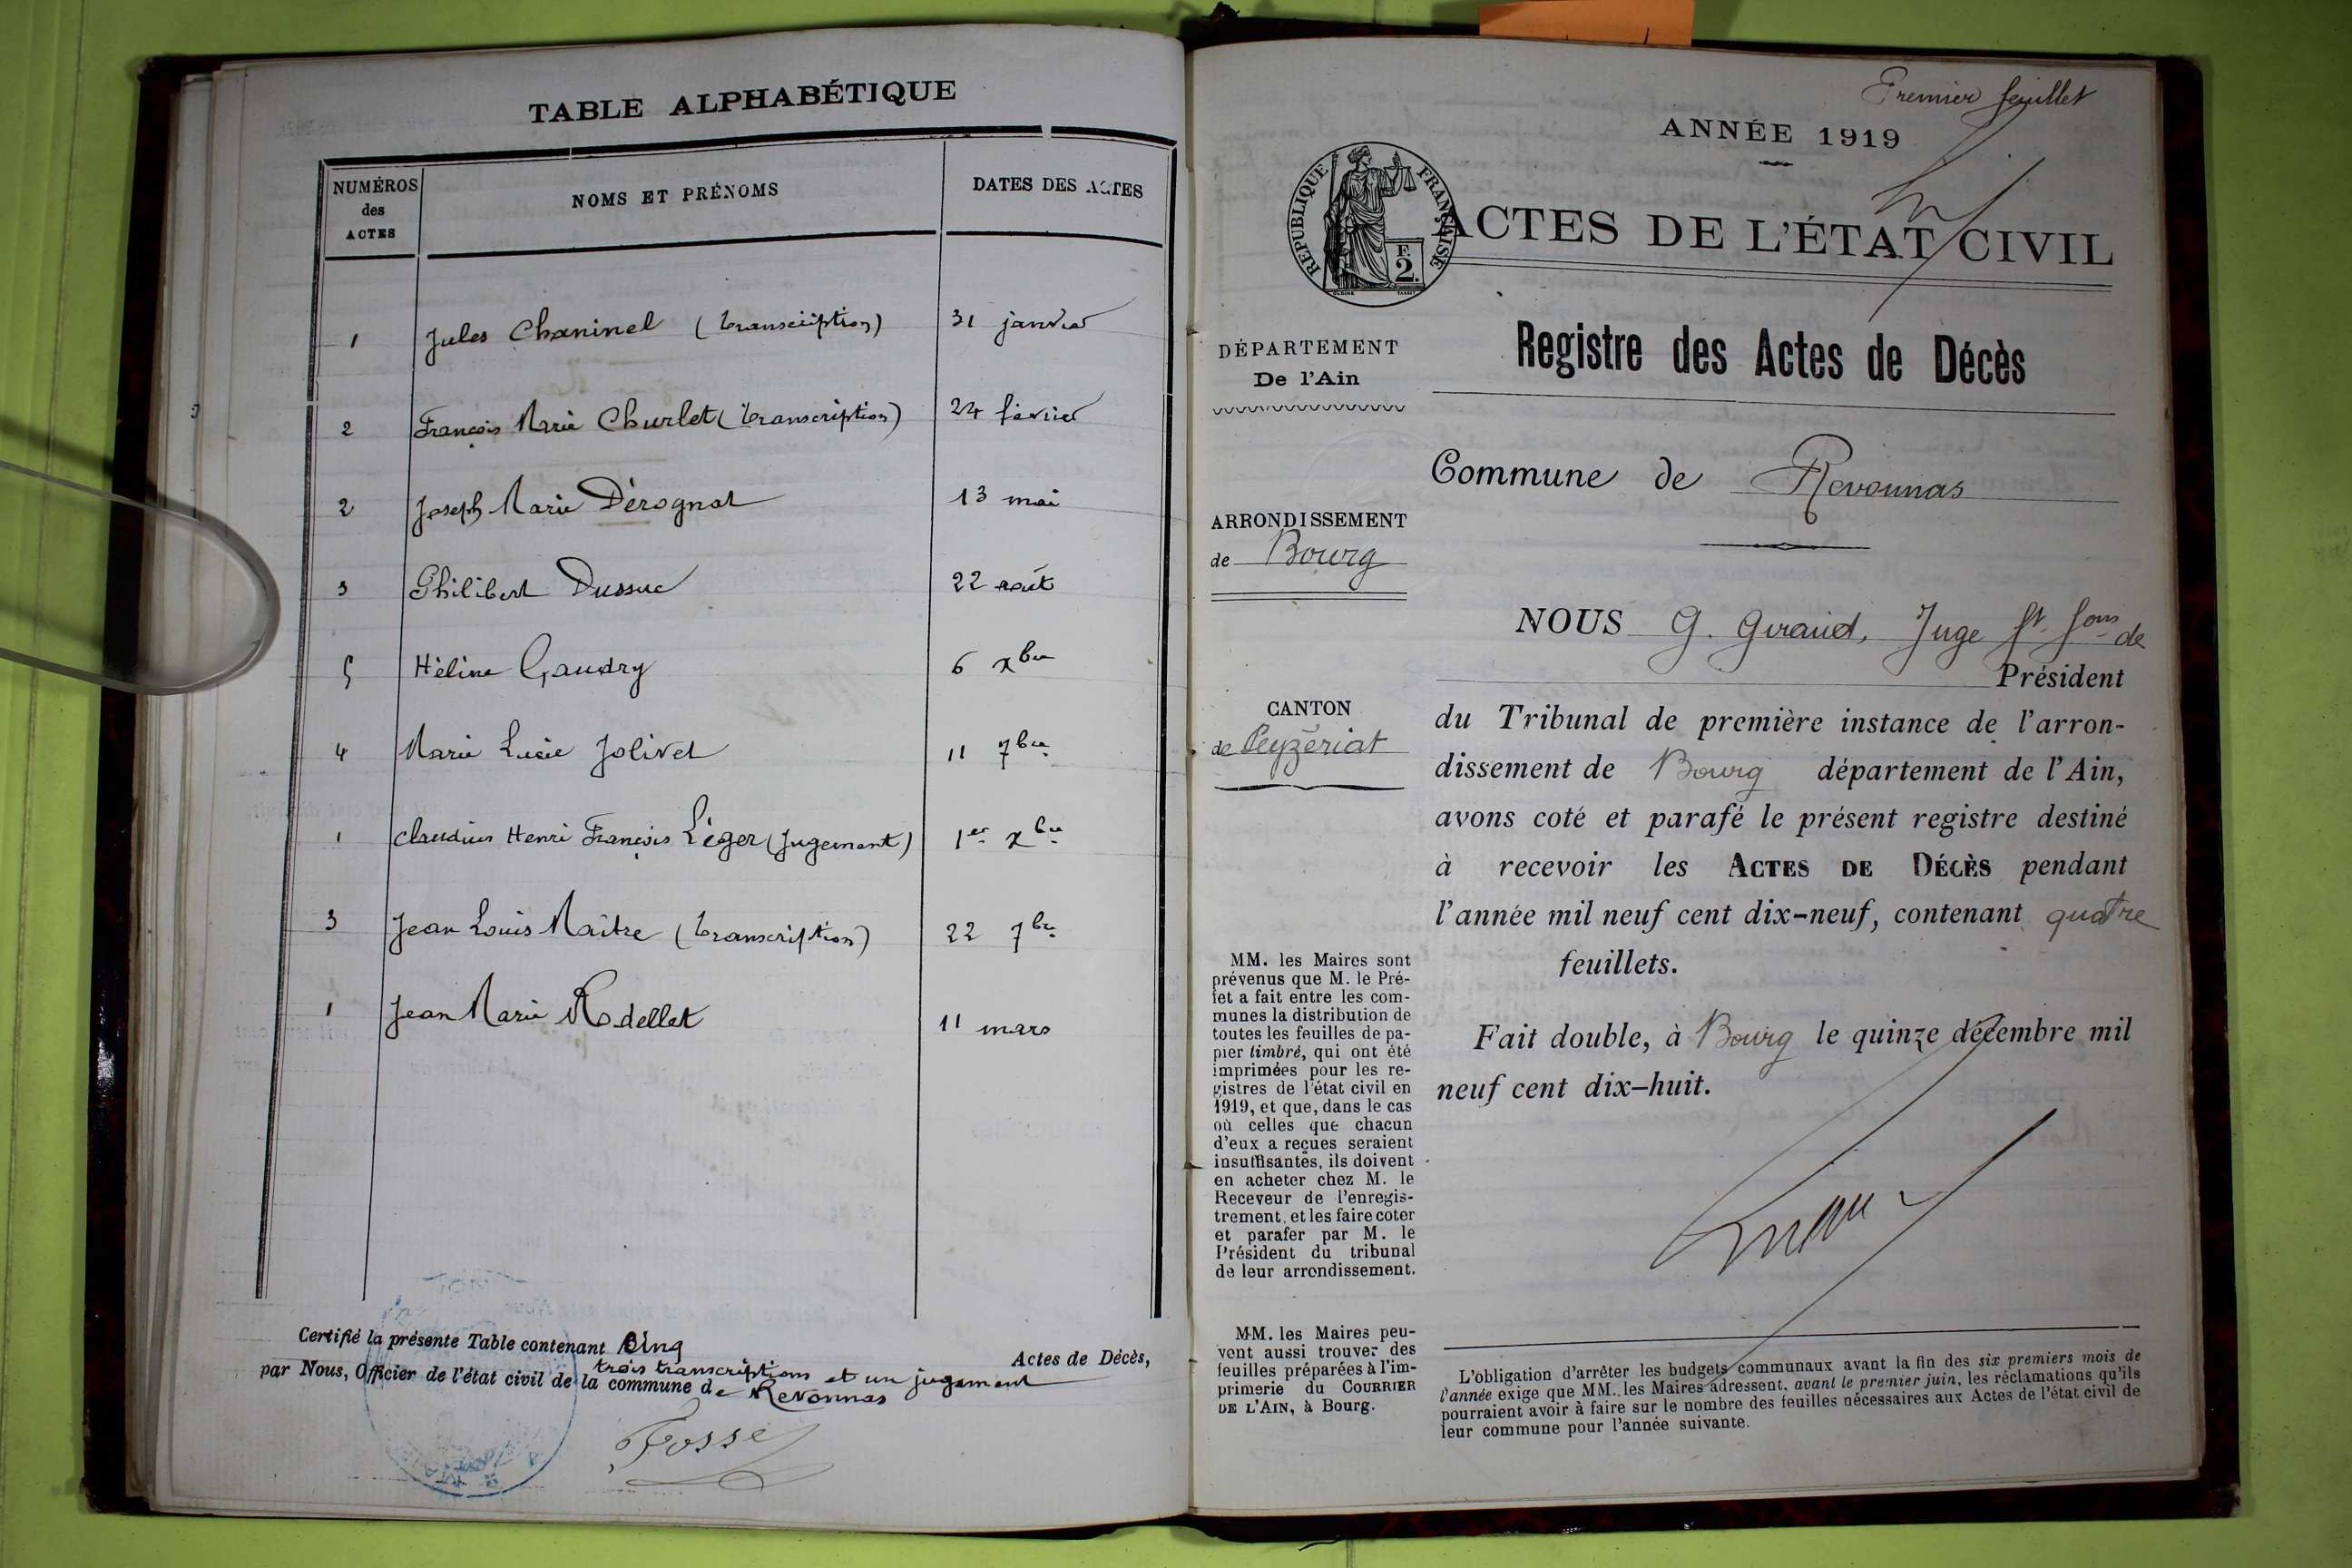 TABLE ALPHABÉTIQUE
NUMÉROS des ACTES NOMS ET PRÉNOMS DATES DES ACTES
1 Jules Chaninel (transcription) 31 janvier
2 François Marie Churlet (transcription) 24 février
2 Joseph Marie Dérognat 13 mai
3 Philibert Dussuc 22 août
5 Hélène Gaudry 6 xbre
4 Marie Lucie Jolivet 11 7bre
1 Claudius Henri François Léger (Jugement) 1er xbre
3 Jean Louis Maître (transcription) 22 7bre
1 Jean Marie Rodellet 11 mars
Certifié la présente Table contenant Cinq Actes de Décès,
trois transcriptions et un jugement
par Nous, Officier de l'état civil de la commune de Revonnas
Fosse
Premier feuillet
ANNÉE 1919
RÉPUBLIQUE FRANÇAISE
F. 2.
ACTES DE L'ÉTAT CIVIL
Registre des Actes de Décès
DÉPARTEMENT
De l'Ain
Commune de Revonnas
ARRONDISSEMENT
de Bourg
CANTON
de Ceyzériat
NOUS G. Giraud, Juge ft fons de
Président
du Tribunal de première instance de l'arron-
dissement de Bourg département de l'Ain,
avons coté et parafé le présent registre destiné
à recevoir les ACTES DE DÉCÈS pendant
l'année mil neuf cent dix-neuf, contenant quatre
feuillets.
Fait double, à Bourg le quinze décembre mil
neuf cent dix-huit.
MM. les Maires sont
prévenus que M. le Pré-
fet a fait entre les com-
munes la distribution de
toutes les feuilles de pa-
pier timbré, qui ont été
imprimées pour les re-
gistres de l'état civil en
1919, et que, dans le cas
où celles que chacun
d'eux a reçues seraient
insuffisantes, ils doivent
en acheter chez M. le
Receveur de l'enregis-
trement, et les faire coter
et parafer par M. le
Président du tribunal
de leur arrondissement.
MM. les Maires peu-
vent aussi trouver des
feuilles préparées à l'im-
primerie du COURRIER
DE L'AIN, à Bourg.
L'obligation d'arrêter les budgets communaux avant la fin des six premiers mois de
l'année exige que MM. les Maires adressent, avant le premier juin, les réclamations qu'ils
pourraient avoir à faire sur le nombre des feuilles nécessaires aux Actes de l'état civil de
leur commune pour l'année suivante.